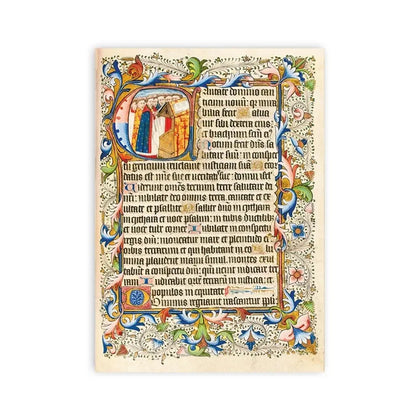 Cantate domino can
ticum novum: quia mira
bilia fecit Salva
vit sibi dextera eius
et brachium scm ei
Notum fecit dns sa
lutare suum: in conspec
tu gencium revelavit iusticiam suam Recor
datus est mie sue et veritatis sue: domui isrl
Viderunt omnes termini terre salutare dei
nri: iubilate deo omnis terra, cantate et exulta
te et psallite Psallite dno in cythara
in cythara et voce psalmi: in tubis ductilib
et voce tube cornee Iubilate in conspectu
regis dni: moveatur mare et plenitudo ei
orbis terrarum et qui habitant in eo Flu
mina plaudent manu simul: montes exul
tabunt a conspectu dni: qm venit iudicare ter
ram Iudicabit orbem terrarum in iusticia: et
populos in equitate
Dominus regnavit irascantur ppli: